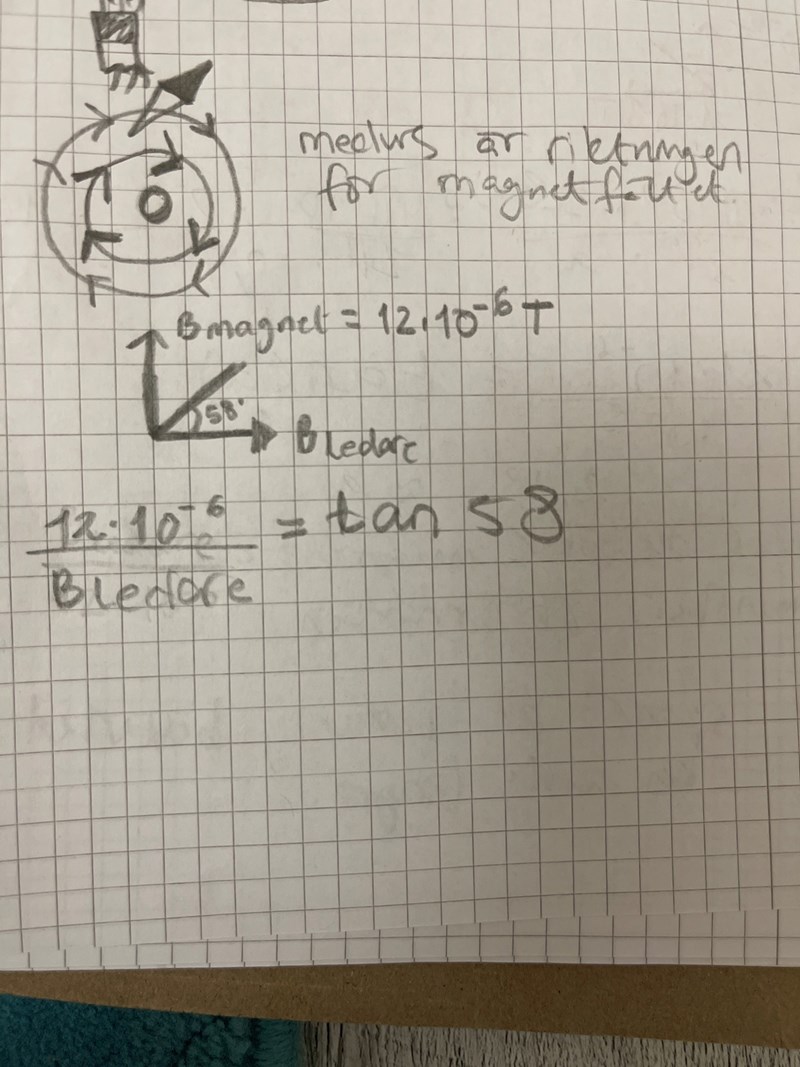 medurs är riktningen
för magnetfältet.
Bmagnet = 12.10⁻⁶ T
58°
Bledare
12·10⁻⁶ / Bledare = tan 58